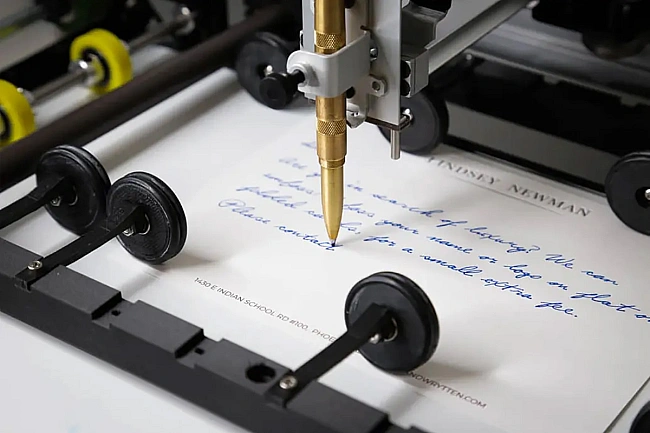 LINDSEY NEWMAN
in search of luxury? We can
your name or logo on flat or
folded cards, for a small extra fee.
Please contact
1430 E INDIAN SCHOOL RD #100, PHOE
OWRYTTEN.COM